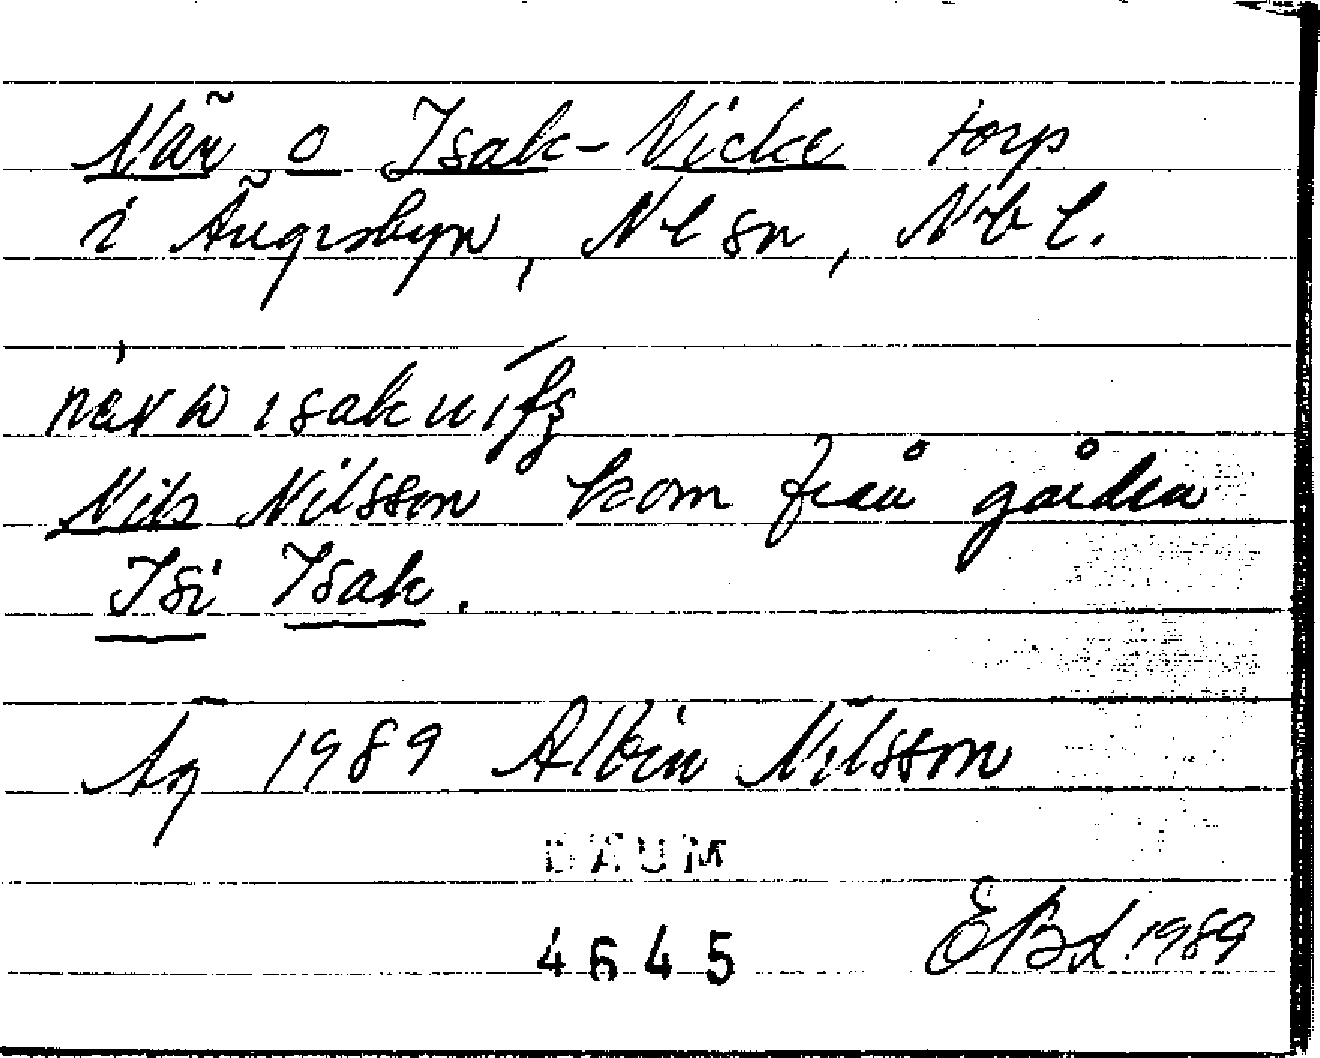 När o Isak-Nicke torp
i Ängesbyn, Nl sn, Nb l.
Nils Nilsson kom från gården
Isi Isak.
1989 Albin Nilsson
DAUM
4645
EBd 1989